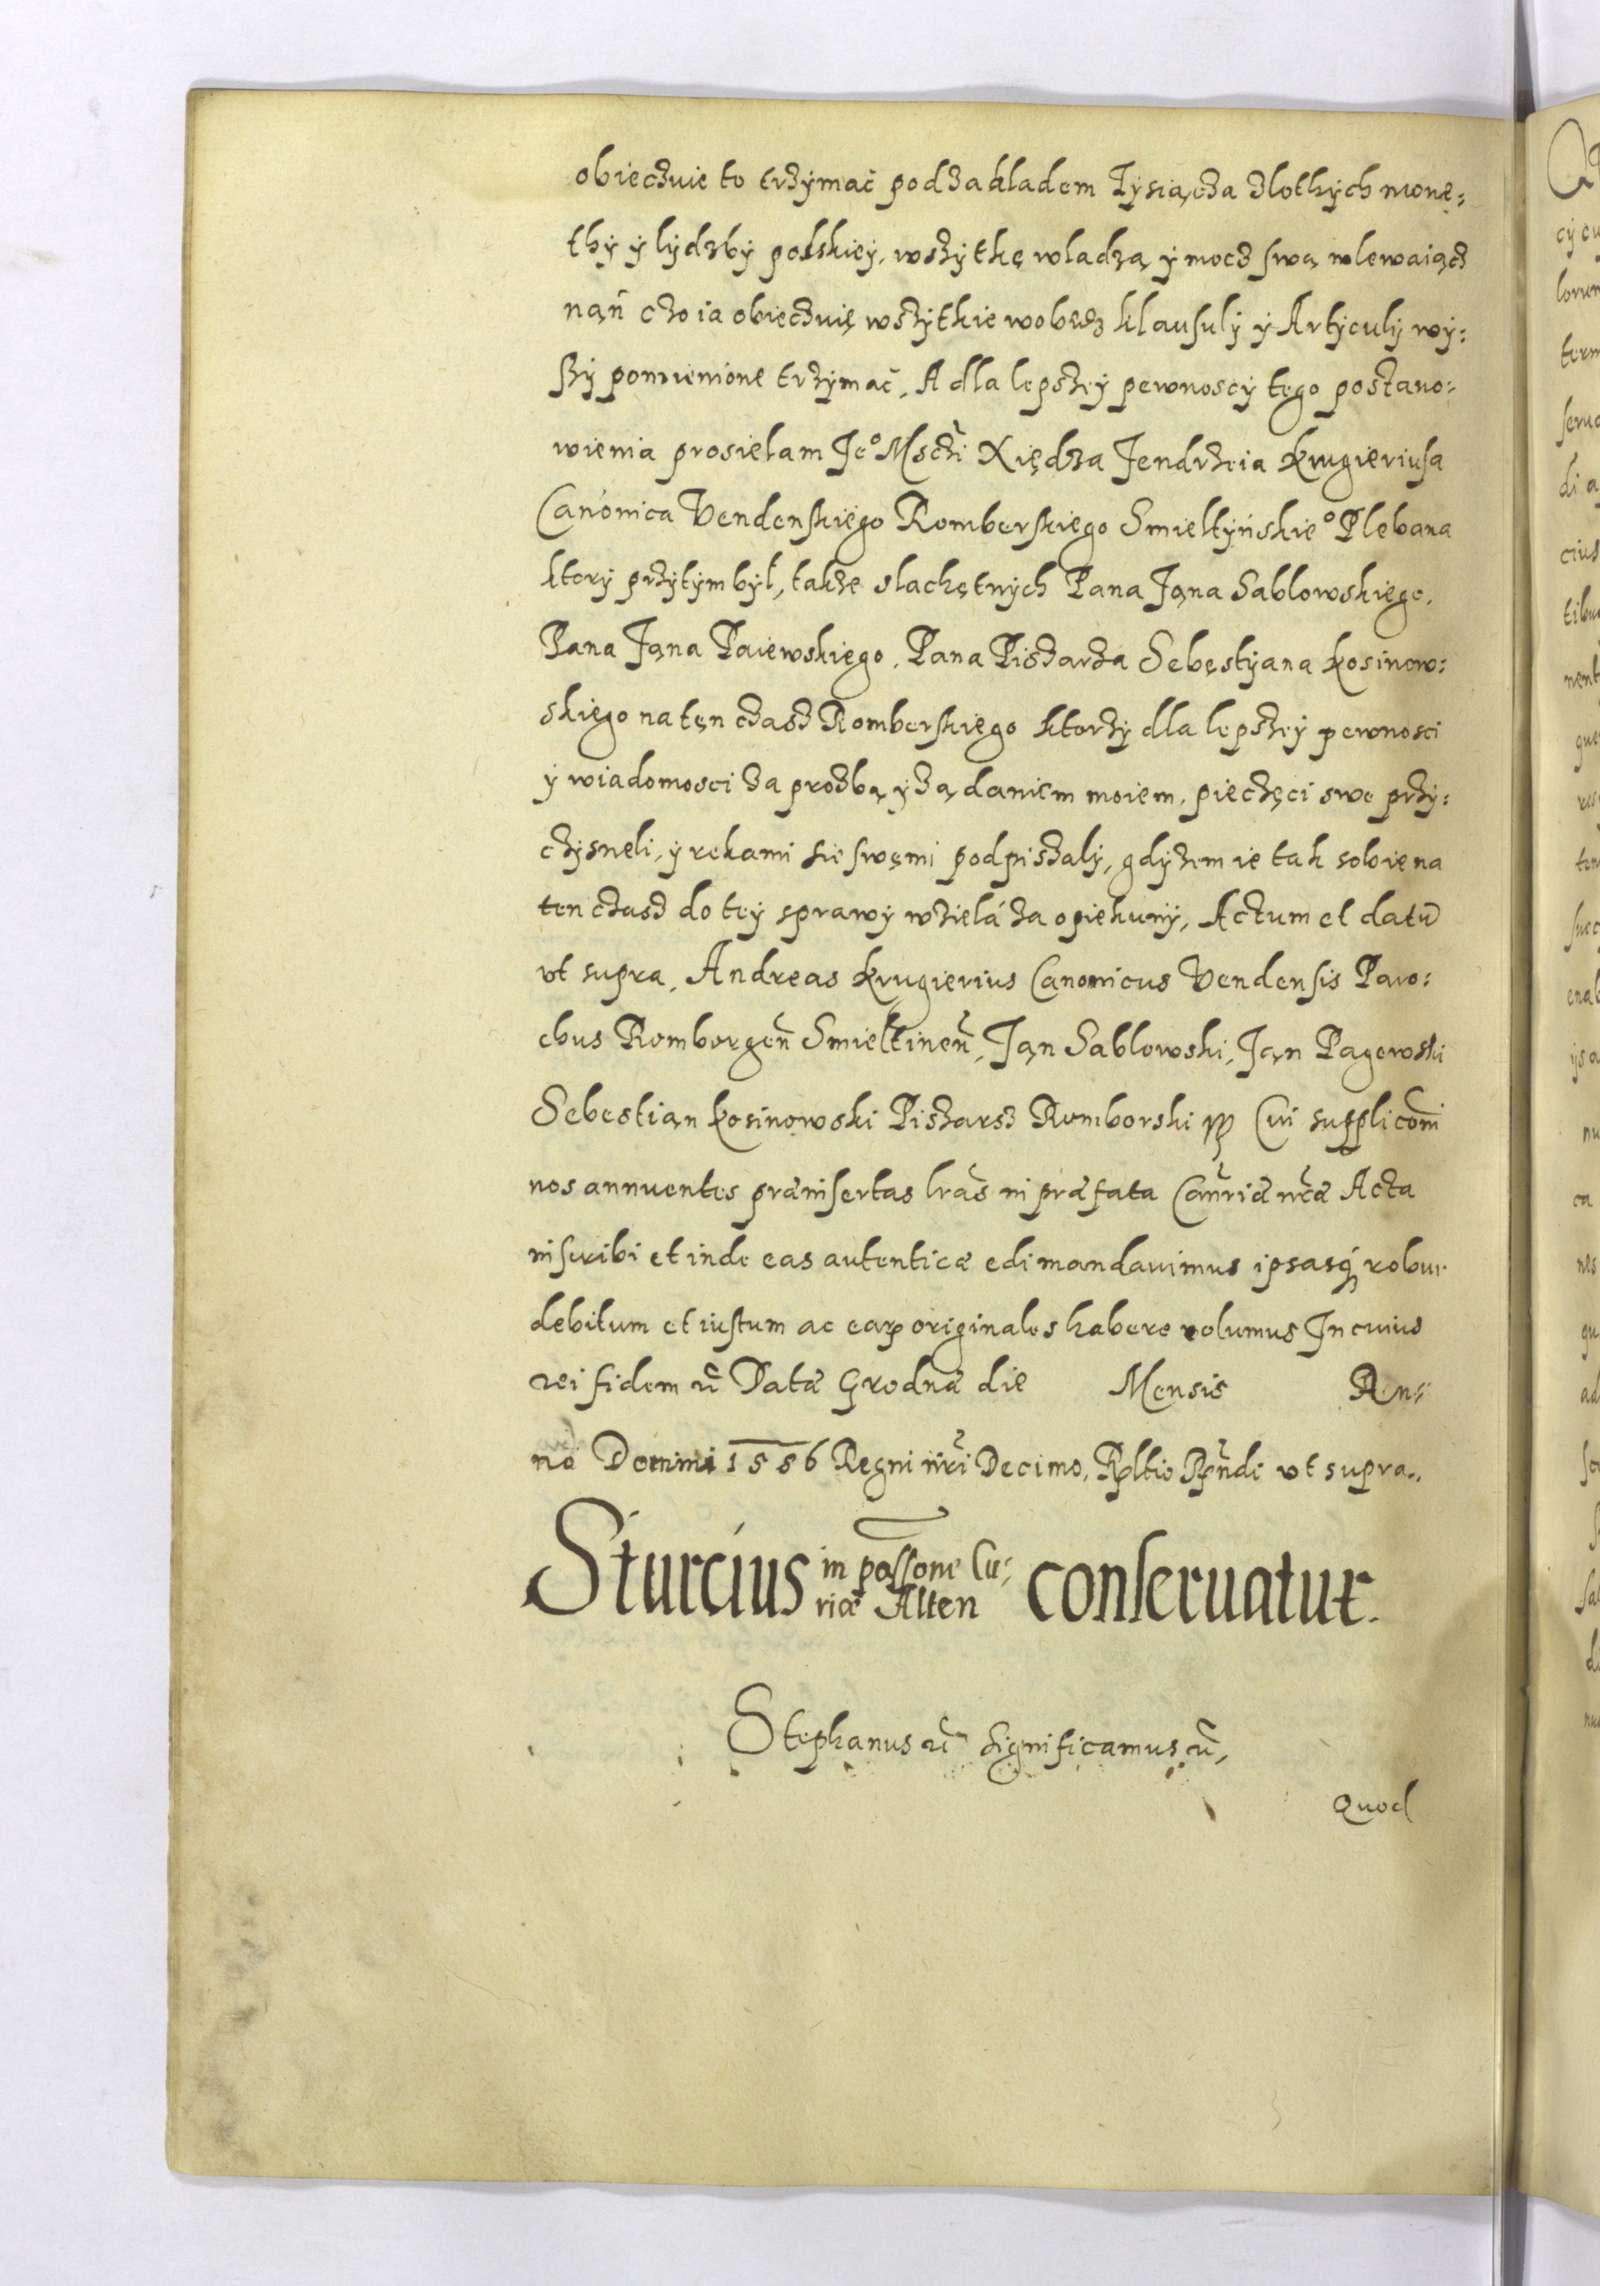 obieczuie to trzÿmać pod zakladem Tÿsiącza zlothÿch monę:
thÿ ÿ lÿdzbÿ polskieÿ, wszÿthę wladzą ÿ mocz swą wlewaiącz
nąń czo ia obieczuię wszÿthie wobecz klausulÿ ÿ Artÿculÿ wÿ:
szÿ pomienione trzÿmać, A dla lepszeÿ pewnoscÿ tego postano:
wienia prosielam Je° Msczi Xiędza Jendrzeia Krugieriusa
Canonica Vendenskiego Romberskiego Smieltÿńskie° Plebana
ktorÿ przÿtÿm bÿł, takze slachętnÿch Pana Jąna Sablowskiego,
Pana Jąna Paiewskiego, Pana Piszarza Sebęstÿana Kosinow:
skiego na tęn czasz Romberskiego ktorzÿ dla lepszeÿ pewnosci
ÿ wiadomosci za prozbą ÿ ządaniem moiem, pieczęci swe przÿ:
czÿsneli, ÿ rekami sie swęmi podpiszalÿ, gdÿzem ie tak sobie na
ten czasz do teÿ sprawÿ wzielá za opiekunÿ, Actum et datū
vt supra, Andreas Krugierius Canonicus Vendensis Paro:
chus Romborgeñ Smieltineñ, Jąn Sablowski, Jąn Pagewski
Sebestiąn Kosinowski Piszarsz Romborski pp Cui supplicōni
nos annuentes præinsertas lrās in præfata Cancriæ nræ Acta
inscribi et inde eas autenticæ edi mandauimus ipsasq́ robur
debitum et iustum ac earꝝ originales habere volumus In cuius
rei fidem rc̃ Datæ Grodnæ die Mensis An:
nò Domini 1586 Regni nrĩ Decimo, Rpltio Rpñdi vt supra,,
Sturcius in possone Cu:
riæ Alten conseruatur.
Stephanus rc̃ significamus rc̃,
Quod